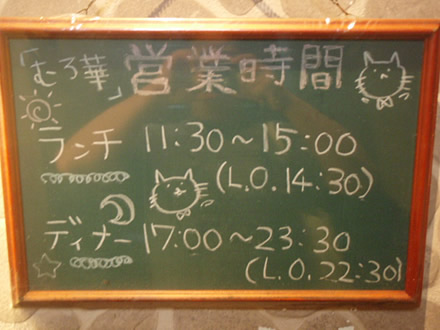 「むろ華」営業時間
ランチ 11:30～15:00
(L.O.14:30)
ディナー 17:00～23:30
(L.O.22:30)